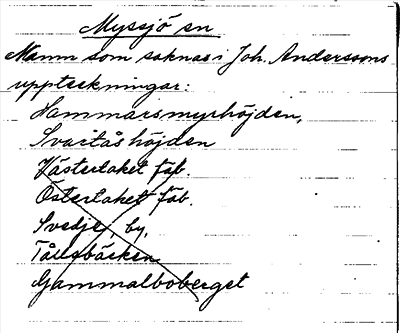 Myssjö sn
Namn som saknas i Joh. Anderssons
uppteckningar:
Hammarsmyrhöjden,
Svartåshöjden
Västertaket fäb.
Östertaket fäb.
Svedje, by,
Tållsbäcken
Gammalboberget